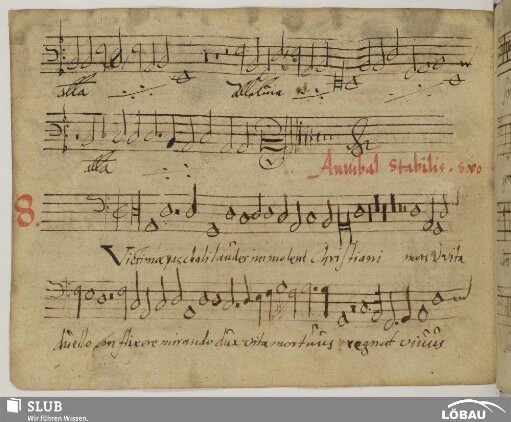 alla Alleluia
alla
Annibal Stabilis. 5. vo
8.
Victimæ paschali laudes immolent Christiani mors & vita
duello conflixere mirando dux vitæ mortuus regnat vivus
SLUB
Wir führen Wissen.
LÖBAU